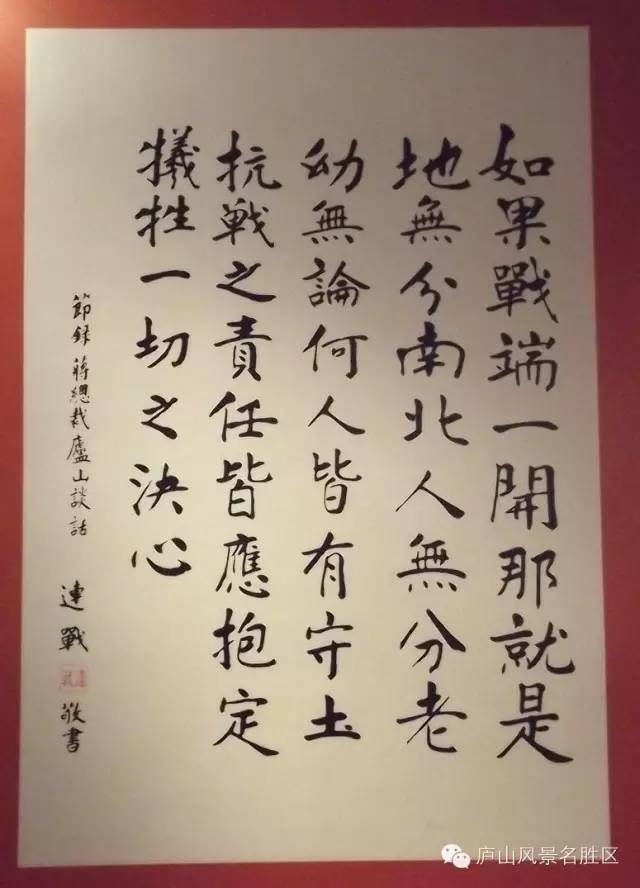 如果戰端一開那就是
地無分南北人無分老
幼無論何人皆有守土
抗戰之責任皆應抱定
犧牲一切之決心
節録 蔣總裁廬山談話
連戰 敬書
庐山风景名胜区